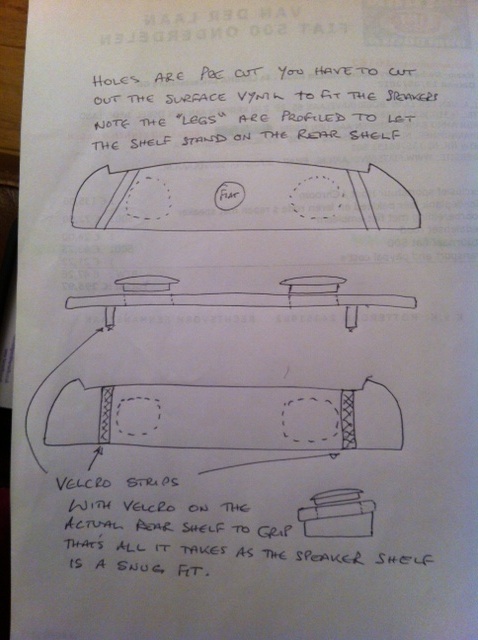 VAN DER LAAN
FIAT 500 ONDERDELEN
HOLES ARE PRE CUT YOU HAVE TO CUT
OUT THE SURFACE VYNIL TO FIT THE SPEAKERS
NOTE THE "LEGS" ARE PROFILED TO LET
THE SHELF STAND ON THE REAR SHELF
FIAT
VELCRO STRIPS
WITH VELCRO ON THE
ACTUAL REAR SHELF TO GRIP
THAT'S ALL IT TAKES AS THE SPEAKER SHELF
IS A SNUG FIT.